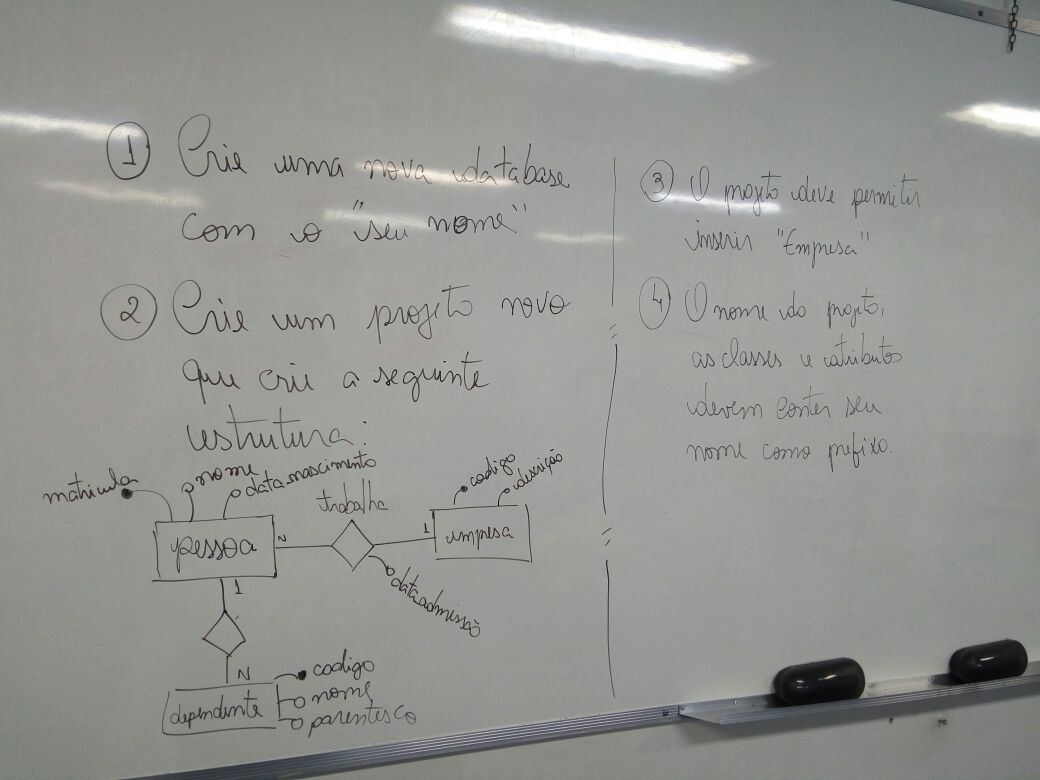 1 Crie uma nova database
com o "seu nome"
2 Crie um projeto novo
que crie a seguinte
estrutura:
matricula
nome
data nascimento
trabalha
codigo
descrição
pessoa
N
1
empresa
data admissão
1
N
dependente
codigo
nome
parentesco
3 O projeto deve permitir
inserir "Empresa"
4 O nome do projeto,
as classes e atributos
devem conter seu
nome como prefixo.